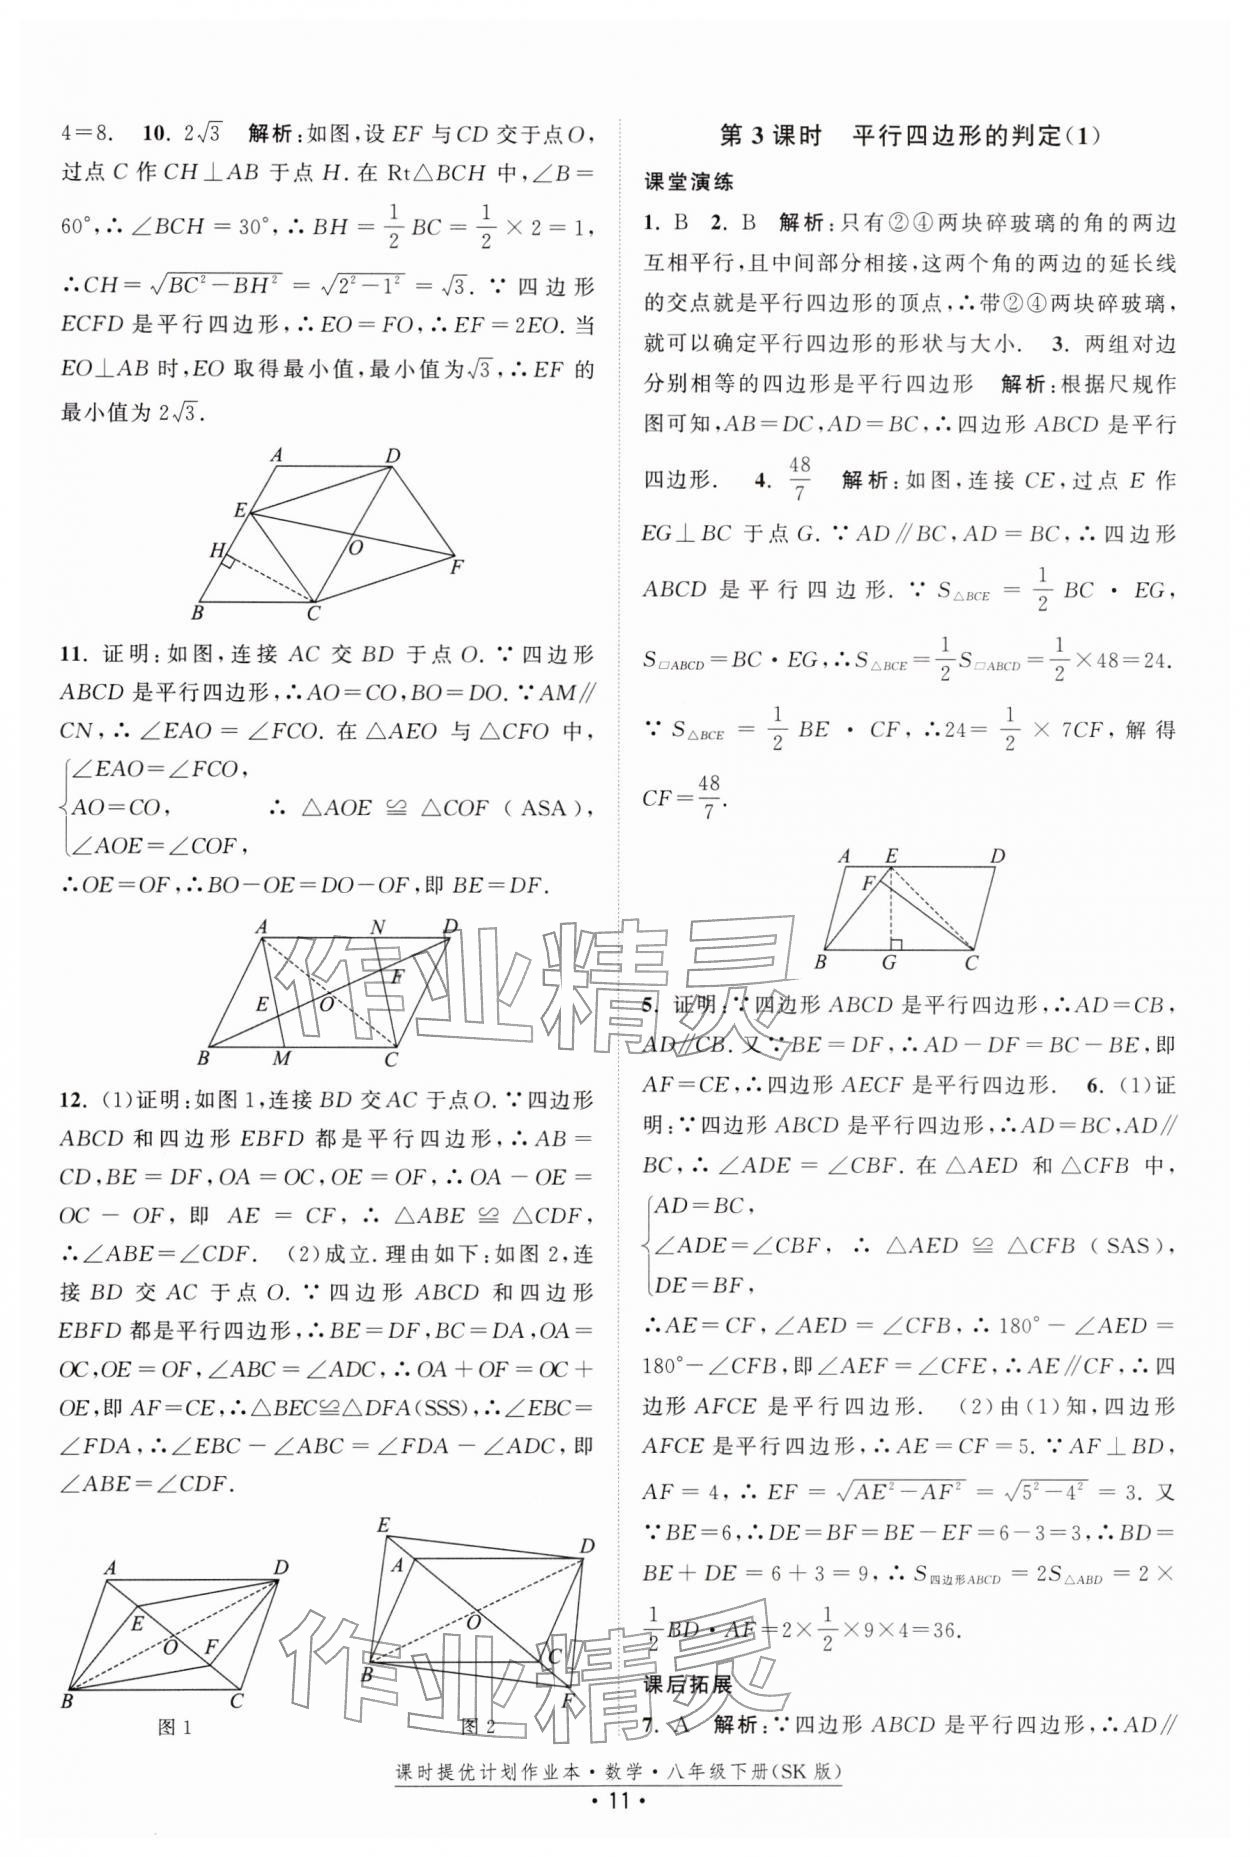 4=8.　10. 2√3　解析:如图,设 EF 与 CD 交于点O,
过点 C 作 CH⊥AB 于点 H. 在 Rt△BCH 中,∠B=
60°,∴∠BCH=30°,∴BH=1/2 BC=1/2×2=1,
∴CH=√(BC²-BH²)=√(2²-1²)=√3. ∵四边形
ECFD 是平行四边形,∴EO=FO,∴EF=2EO. 当
EO⊥AB 时,EO 取得最小值,最小值为√3,∴EF 的
最小值为 2√3.
A D E H O F B C
11. 证明:如图,连接 AC 交 BD 于点 O. ∵四边形
ABCD 是平行四边形,∴AO=CO,BO=DO. ∵AM∥
CN,∴∠EAO=∠FCO. 在△AEO 与△CFO 中,
{∠EAO=∠FCO,
AO=CO,　∴△AOE≌△COF(ASA),
∠AOE=∠COF,
∴OE=OF,∴BO-OE=DO-OF,即 BE=DF.
A N D F E O B M C
12. (1)证明:如图 1,连接 BD 交 AC 于点 O. ∵四边形
ABCD 和四边形 EBFD 都是平行四边形,∴AB=
CD,BE=DF,OA=OC,OE=OF,∴OA-OE=
OC-OF,即 AE=CF,∴△ABE≌△CDF,
∴∠ABE=∠CDF.　(2)成立. 理由如下:如图 2,连
接 BD 交 AC 于点 O. ∵四边形 ABCD 和四边形
EBFD 都是平行四边形,∴BE=DF,BC=DA,OA=
OC,OE=OF,∠ABC=∠ADC,∴OA+OF=OC+
OE,即 AF=CE,∴△BEC≌△DFA(SSS),∴∠EBC=
∠FDA,∴∠EBC-∠ABC=∠FDA-∠ADC,即
∠ABE=∠CDF.
A D E O F B C
图 1
E A D O B C F
图 2
第 3 课时　平行四边形的判定(1)
课堂演练
1. B　2. B　解析:只有②④两块碎玻璃的角的两边
互相平行,且中间部分相接,这两个角的两边的延长线
的交点就是平行四边形的顶点,∴带②④两块碎玻璃,
就可以确定平行四边形的形状与大小.　3. 两组对边
分别相等的四边形是平行四边形　解析:根据尺规作
图可知,AB=DC,AD=BC,∴四边形 ABCD 是平行
四边形.　4. 48/7　解析:如图,连接 CE,过点 E 作
EG⊥BC 于点 G. ∵AD∥BC,AD=BC,∴四边形
ABCD 是平行四边形. ∵S△BCE=1/2 BC·EG,
S□ABCD=BC·EG,∴S△BCE=1/2 S□ABCD=1/2×48=24.
∵S△BCE=1/2 BE·CF,∴24=1/2×7CF,解得
CF=48/7.
A E D F B G C
5. 证明:∵四边形 ABCD 是平行四边形,∴AD=CB,
AD∥CB. 又∵BE=DF,∴AD-DF=BC-BE,即
AF=CE,∴四边形 AECF 是平行四边形.　6. (1)证
明:∵四边形 ABCD 是平行四边形,∴AD=BC,AD∥
BC,∴∠ADE=∠CBF. 在△AED 和△CFB 中,
{AD=BC,
∠ADE=∠CBF,∴△AED≌△CFB(SAS),
DE=BF,
∴AE=CF,∠AED=∠CFB,∴180°-∠AED=
180°-∠CFB,即∠AEF=∠CFE,∴AE∥CF,∴四
边形 AFCE 是平行四边形.　(2)由(1)知,四边形
AFCE 是平行四边形,∴AE=CF=5. ∵AF⊥BD,
AF=4,∴EF=√(AE²-AF²)=√(5²-4²)=3. 又
∵BE=6,∴DE=BF=BE-EF=6-3=3,∴BD=
BE+DE=6+3=9,∴S四边形ABCD=2S△ABD=2×
1/2 BD·AF=2×1/2×9×4=36.
课后拓展
7. A　解析:∵四边形 ABCD 是平行四边形,∴AD∥
课时提优计划作业本·数学·八年级下册(SK 版)
·11·
作业精灵
作业精灵